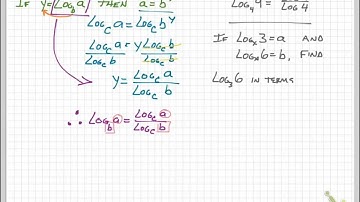 IF y=Log_b a THEN a=b^y
Log_c a = Log_c b^y
Log_c a / Log_c b = y Log_c b / Log_c b
y = Log_c a / Log_c b
∴ Log_b a = Log_c a / Log_c b
Log_4 9 = / Log 4
IF Log_x 3=a AND
Log_x 6=b, FIND
Log_3 6 IN TERMS